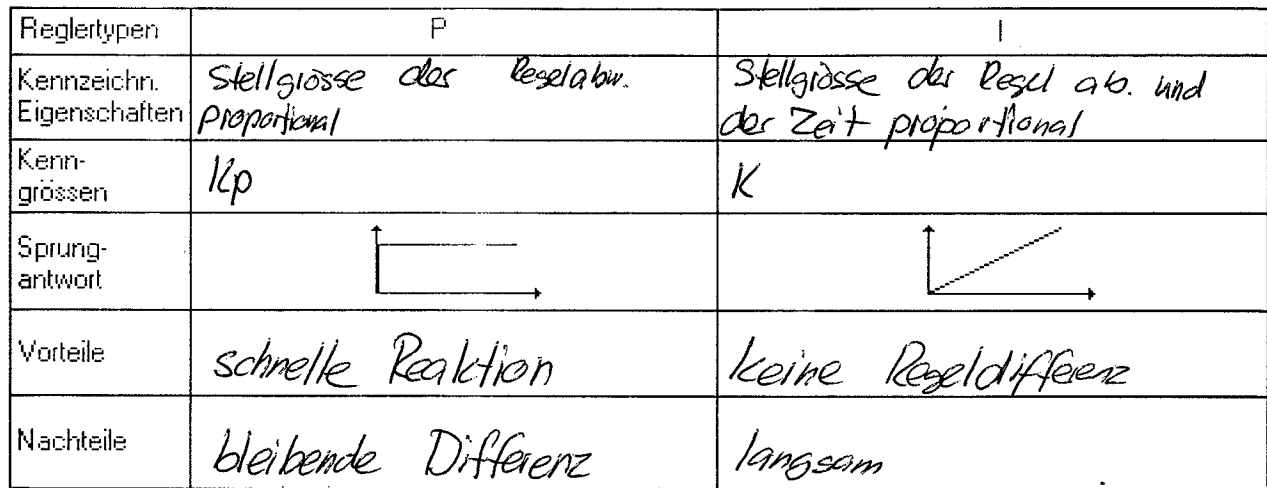 Reglertypen P I
Kennzeichn. Eigenschaften
Stellgrösse der Regelabw.
proportional
Stellgrösse der Regel ab. und
der Zeit proportional
Kenn-
grössen
Kp K
Sprung-
antwort
Vorteile schnelle Reaktion keine Regeldifferenz
Nachteile bleibende Differenz langsam